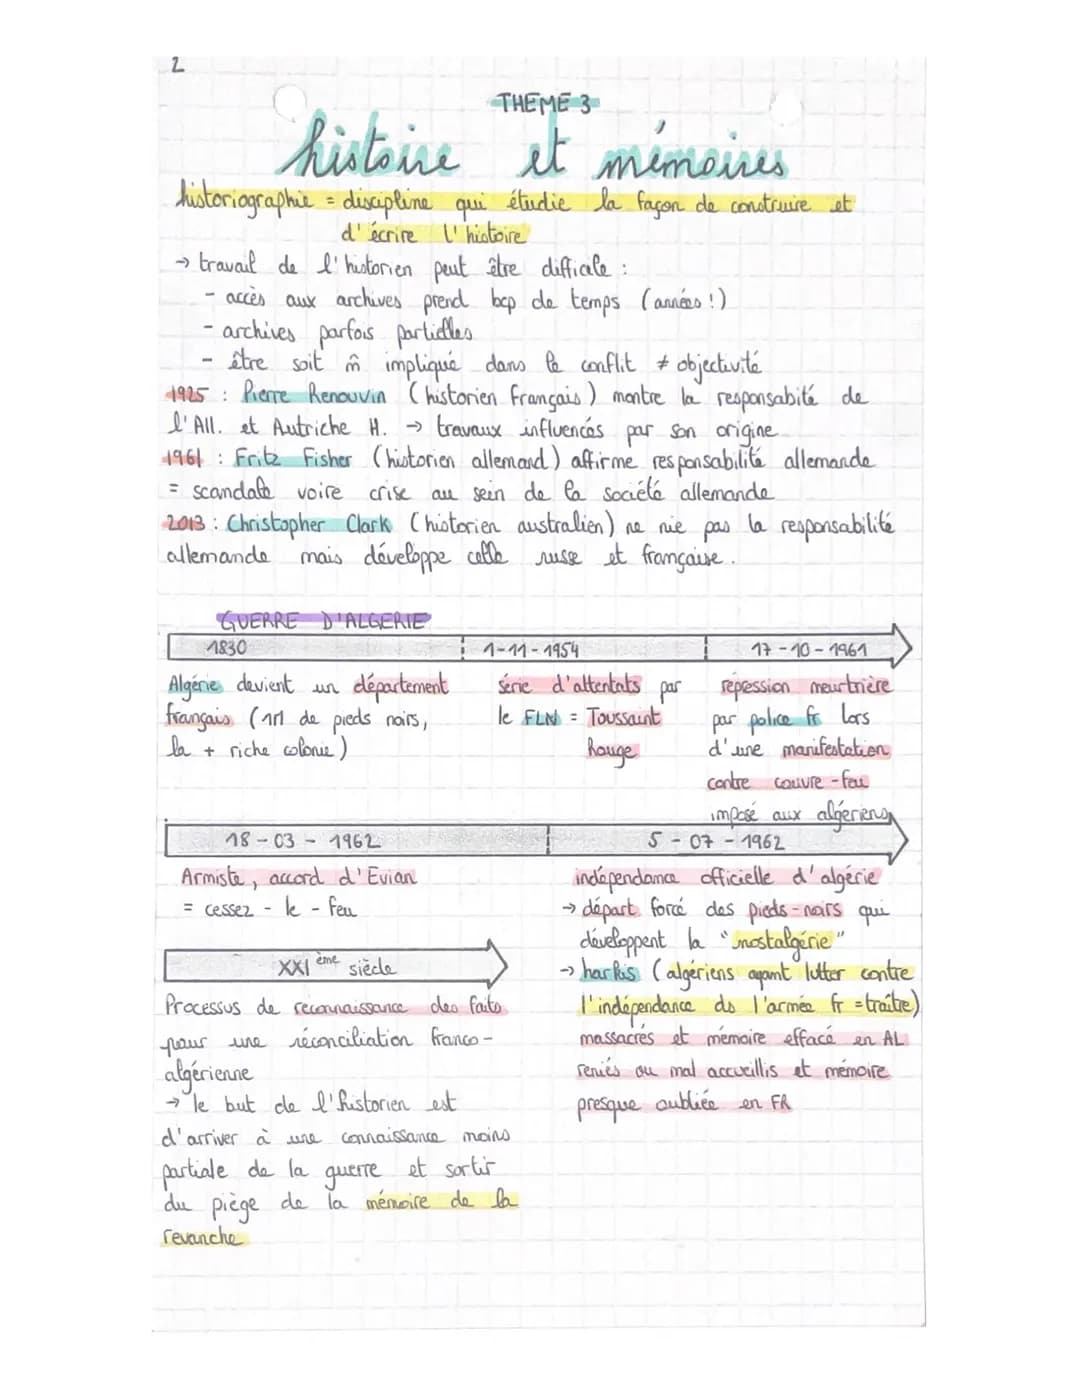 2
THEME 3
histoire et mémoires
historiographie = discipline qui étudie la façon de construire et
d'écrire l'histoire
→ travail de l'historien peut être difficile :
- accès aux archives prend bcp de temps (années !)
- archives parfois partielles
- être soit m̂ impliqué dans le conflit ≠ objectivité
1925 : Pierre Renouvin (historien français) montre la responsabité de
l'All. et Autriche H. → travaux influencés par son origine
1961 : Fritz Fisher (historien allemand) affirme responsabilité allemande
= scandale voire crise au sein de la société allemande
2013 : Christopher Clark (historien australien) ne nie pas la responsabilité
allemande mais développe celle russe et française.
GUERRE D'ALGERIE
1830
1-11-1954
17-10-1961
Algérie devient un département
français (1M de pieds noirs,
la + riche colonie)
série d'attentats par
le FLN = Toussaint
Rouge
répression meurtrière
par police fr lors
d'une manifestation
contre couvre-feu
imposé aux algériens
18-03-1962
5-07-1962
Armiste, accord d'Evian
= cessez-le-feu
indépendance officielle d'algérie
→ départ forcé des pieds-noirs qui
développent la "nostalgérie"
→ harkis (algériens ayant lutter contre
l'indépendance ds l'armée fr = traître)
massacrés et mémoire effacé en AL
reniés ou mal accueillis et mémoire
presque oubliée en FR
XXI ème siècle
Processus de reconnaissance des faits
pour une réconciliation franco-
algérienne
→ le but de l'historien est
d'arriver à une connaissance moins
partiale de la guerre et sortir
du piège de la mémoire de la
revanche